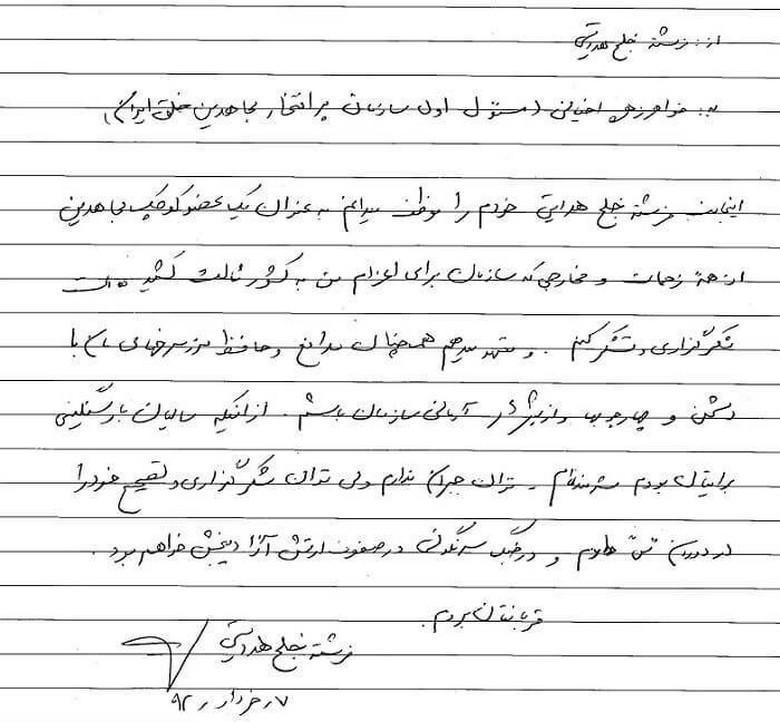 از: فرشته خلج هدایتی
به: خواهر زهره اخیانی (مسئول اول سازمان پر افتخار مجاهدین خلق ایران)
اینجانب فرشته خلج هدایتی خودم را موظف میدانم به عنوان یک عضو کوچک مجاهدین
از همهٔ زحمات و مخارجی که سازمان برای اعزام من به کشور ثالث کشیده است
شکرگزاری و تشکر کنم. و تعهد میدهم همچنان مدافع و حافظ مرزسرخهای مان با
دشمن و چارچوبها و ارزشهای آرمانی سازمان باشم. از اینکه سالیان بار سنگینی
برایتان بودم شرمنده‌ام. توان جبران ندارم ولی توان شکرگزاری و تصحیح خود را
در دوران س س دارم و در جنگ سرنگونی در صفوف ارتش آزادیبخش خواهم بود.
قربانتان بروم.
فرشته خلج هدایتی
۷ر خرداد ر ۹۲